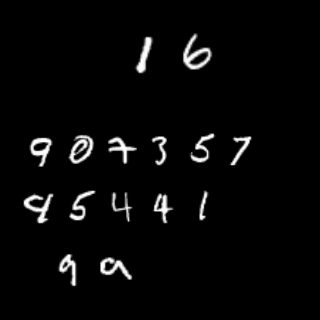 1 6
9 0 7 3 5 7
9 5 4 4 1
9 9